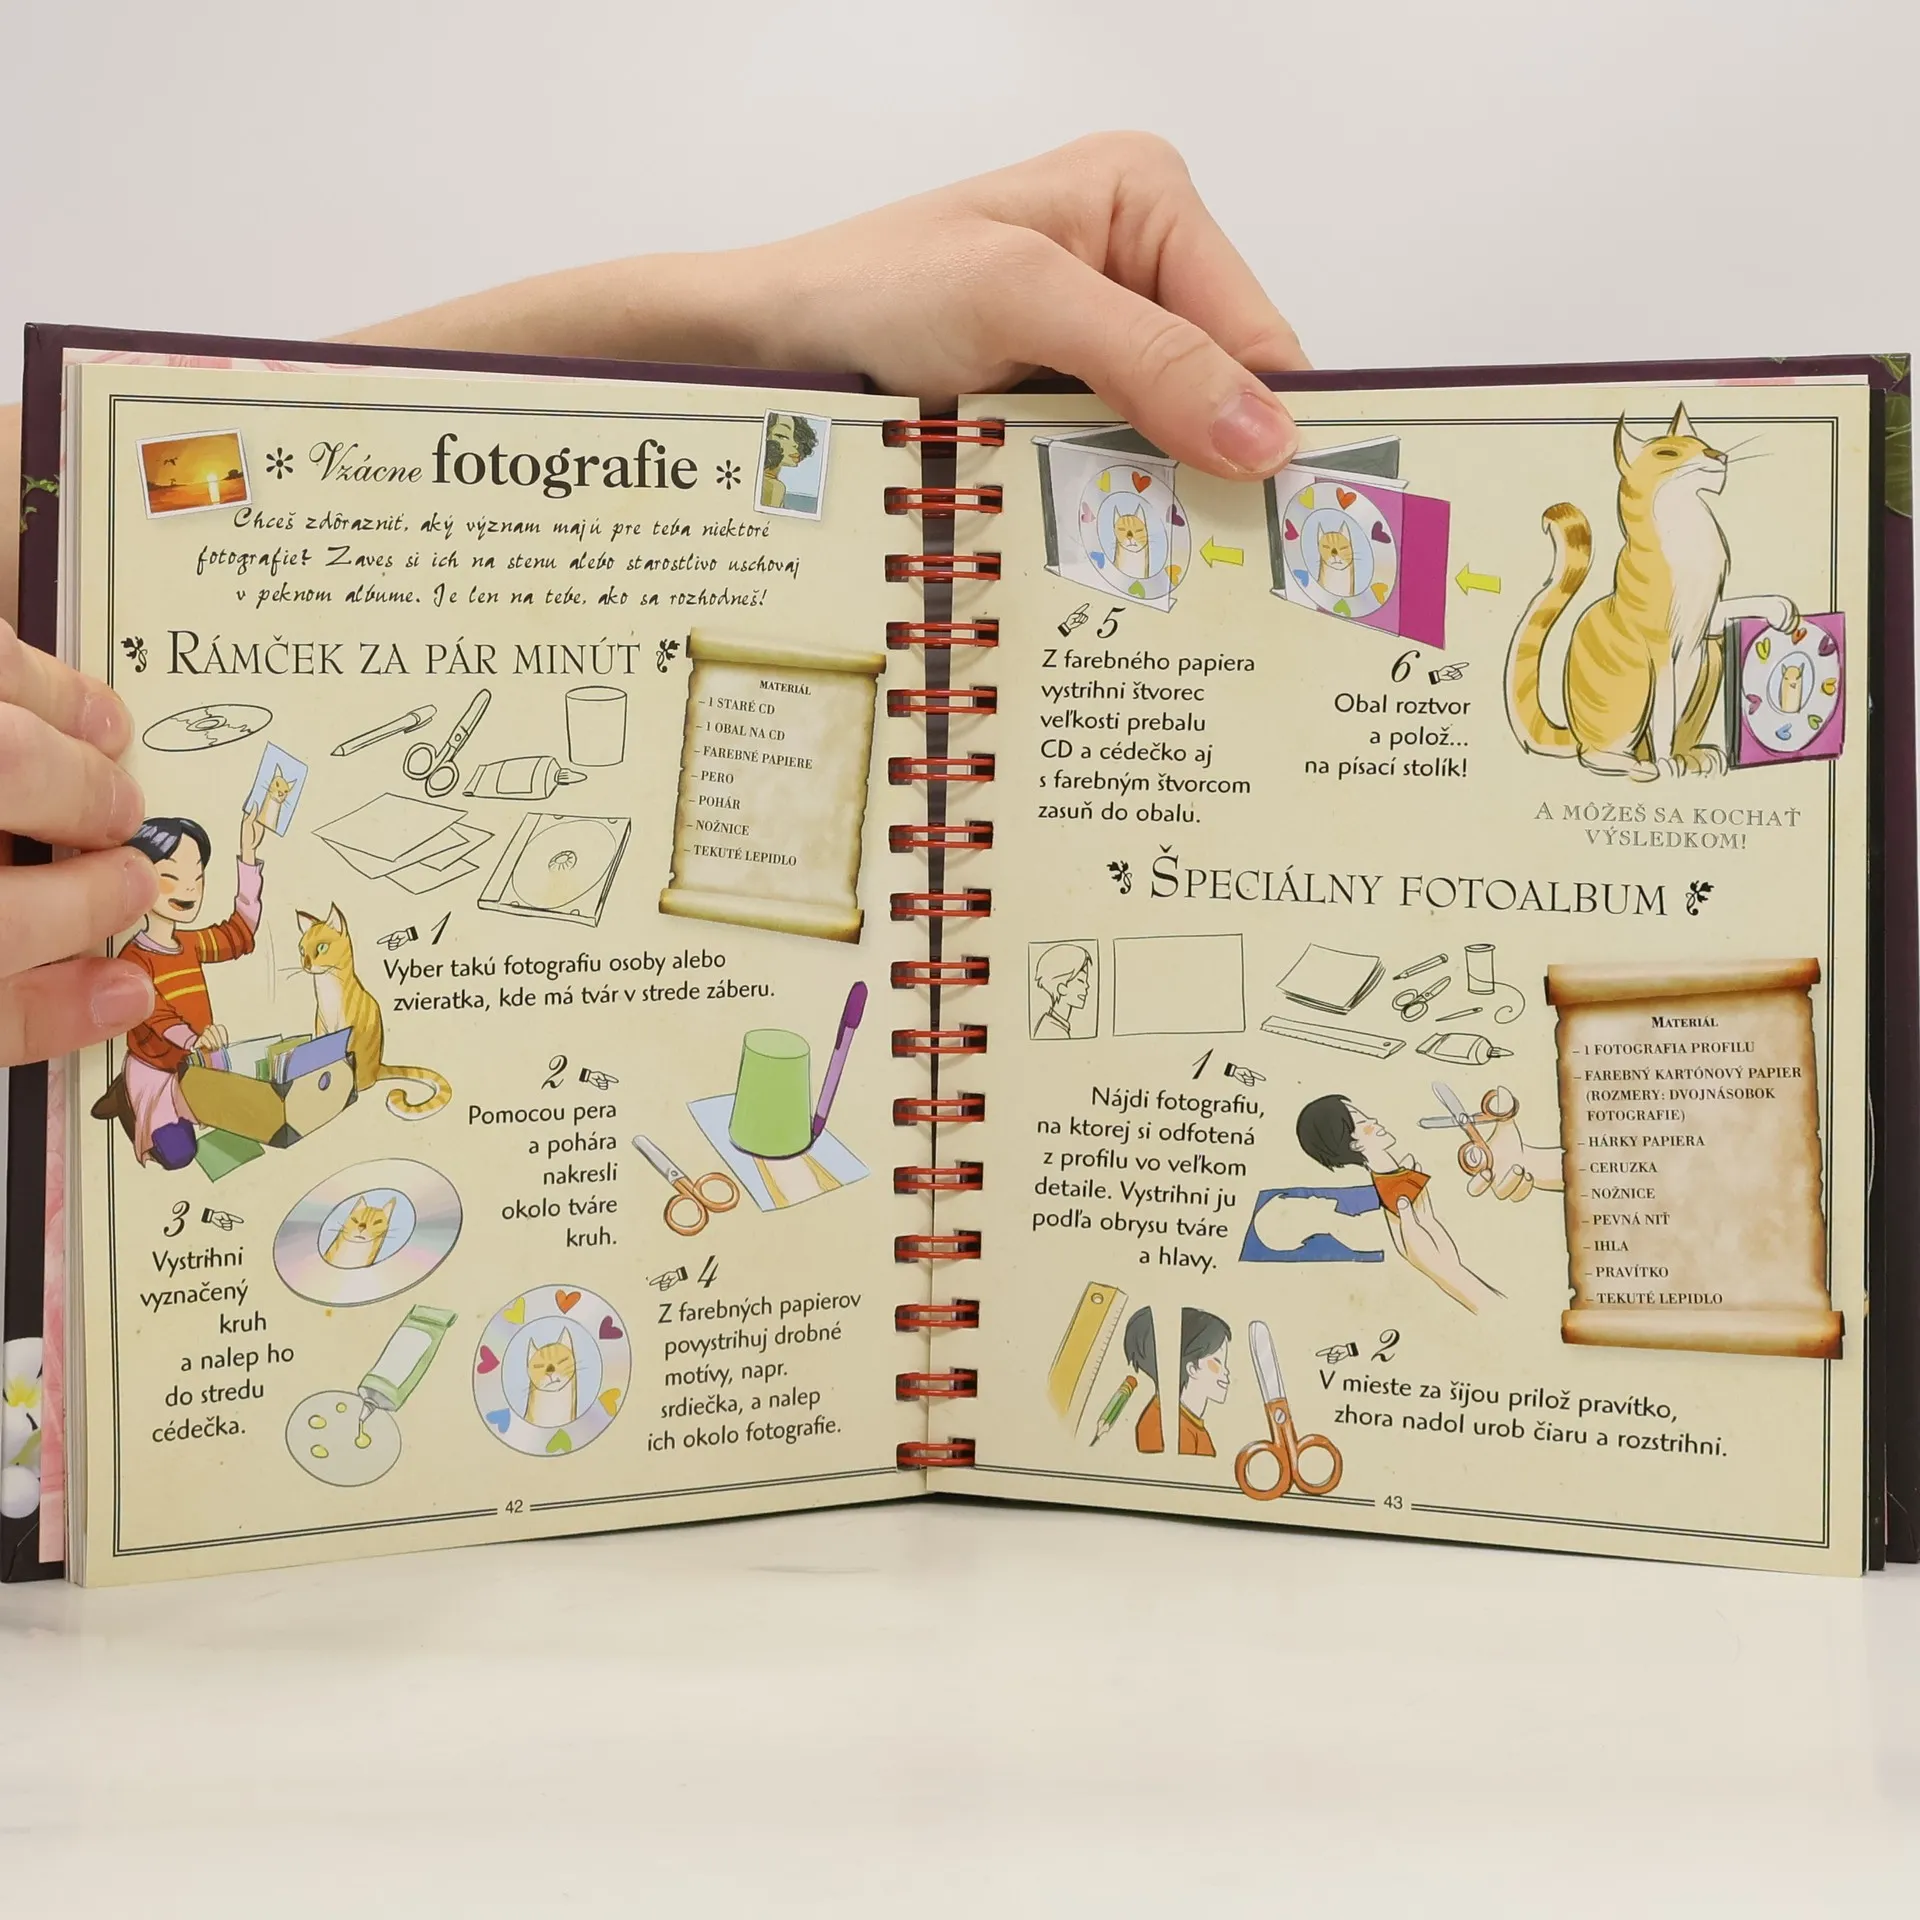 Vzácne fotografie
Chceš zdôrazniť, aký význam majú pre teba niektoré
fotografie? Zaves si ich na stenu alebo starostlivo uschovaj
v peknom albume. Je len na tebe, ako sa rozhodneš!
RÁMČEK ZA PÁR MINÚT
MATERIÁL
– 1 STARÉ CD
– 1 OBAL NA CD
– FAREBNÉ PAPIERE
– PERO
– POHÁR
– NOŽNICE
– TEKUTÉ LEPIDLO
1
Vyber takú fotografiu osoby alebo
zvieratka, kde má tvár v strede záberu.
2
Pomocou pera
a pohára
nakresli
okolo tváre
kruh.
3
Vystrihni
vyznačený
kruh
a nalep ho
do stredu
cédečka.
4
Z farebných papierov
povystrihuj drobné
motívy, napr.
srdiečka, a nalep
ich okolo fotografie.
42
5
Z farebného papiera
vystrihni štvorec
veľkosti prebalu
CD a cédečko aj
s farebným štvorcom
zasuň do obalu.
6
Obal roztvor
a polož...
na písací stolík!
A MÔŽEŠ SA KOCHAŤ
VÝSLEDKOM!
ŠPECIÁLNY FOTOALBUM
MATERIÁL
– 1 FOTOGRAFIA PROFILU
– FAREBNÝ KARTÓNOVÝ PAPIER
(ROZMERY: DVOJNÁSOBOK
FOTOGRAFIE)
– HÁRKY PAPIERA
– CERUZKA
– NOŽNICE
– PEVNÁ NIŤ
– IHLA
– PRAVÍTKO
– TEKUTÉ LEPIDLO
1
Nájdi fotografiu,
na ktorej si odfotená
z profilu vo veľkom
detaile. Vystrihni ju
podľa obrysu tváre
a hlavy.
2
V mieste za šijou prilož pravítko,
zhora nadol urob čiaru a rozstrihni.
43